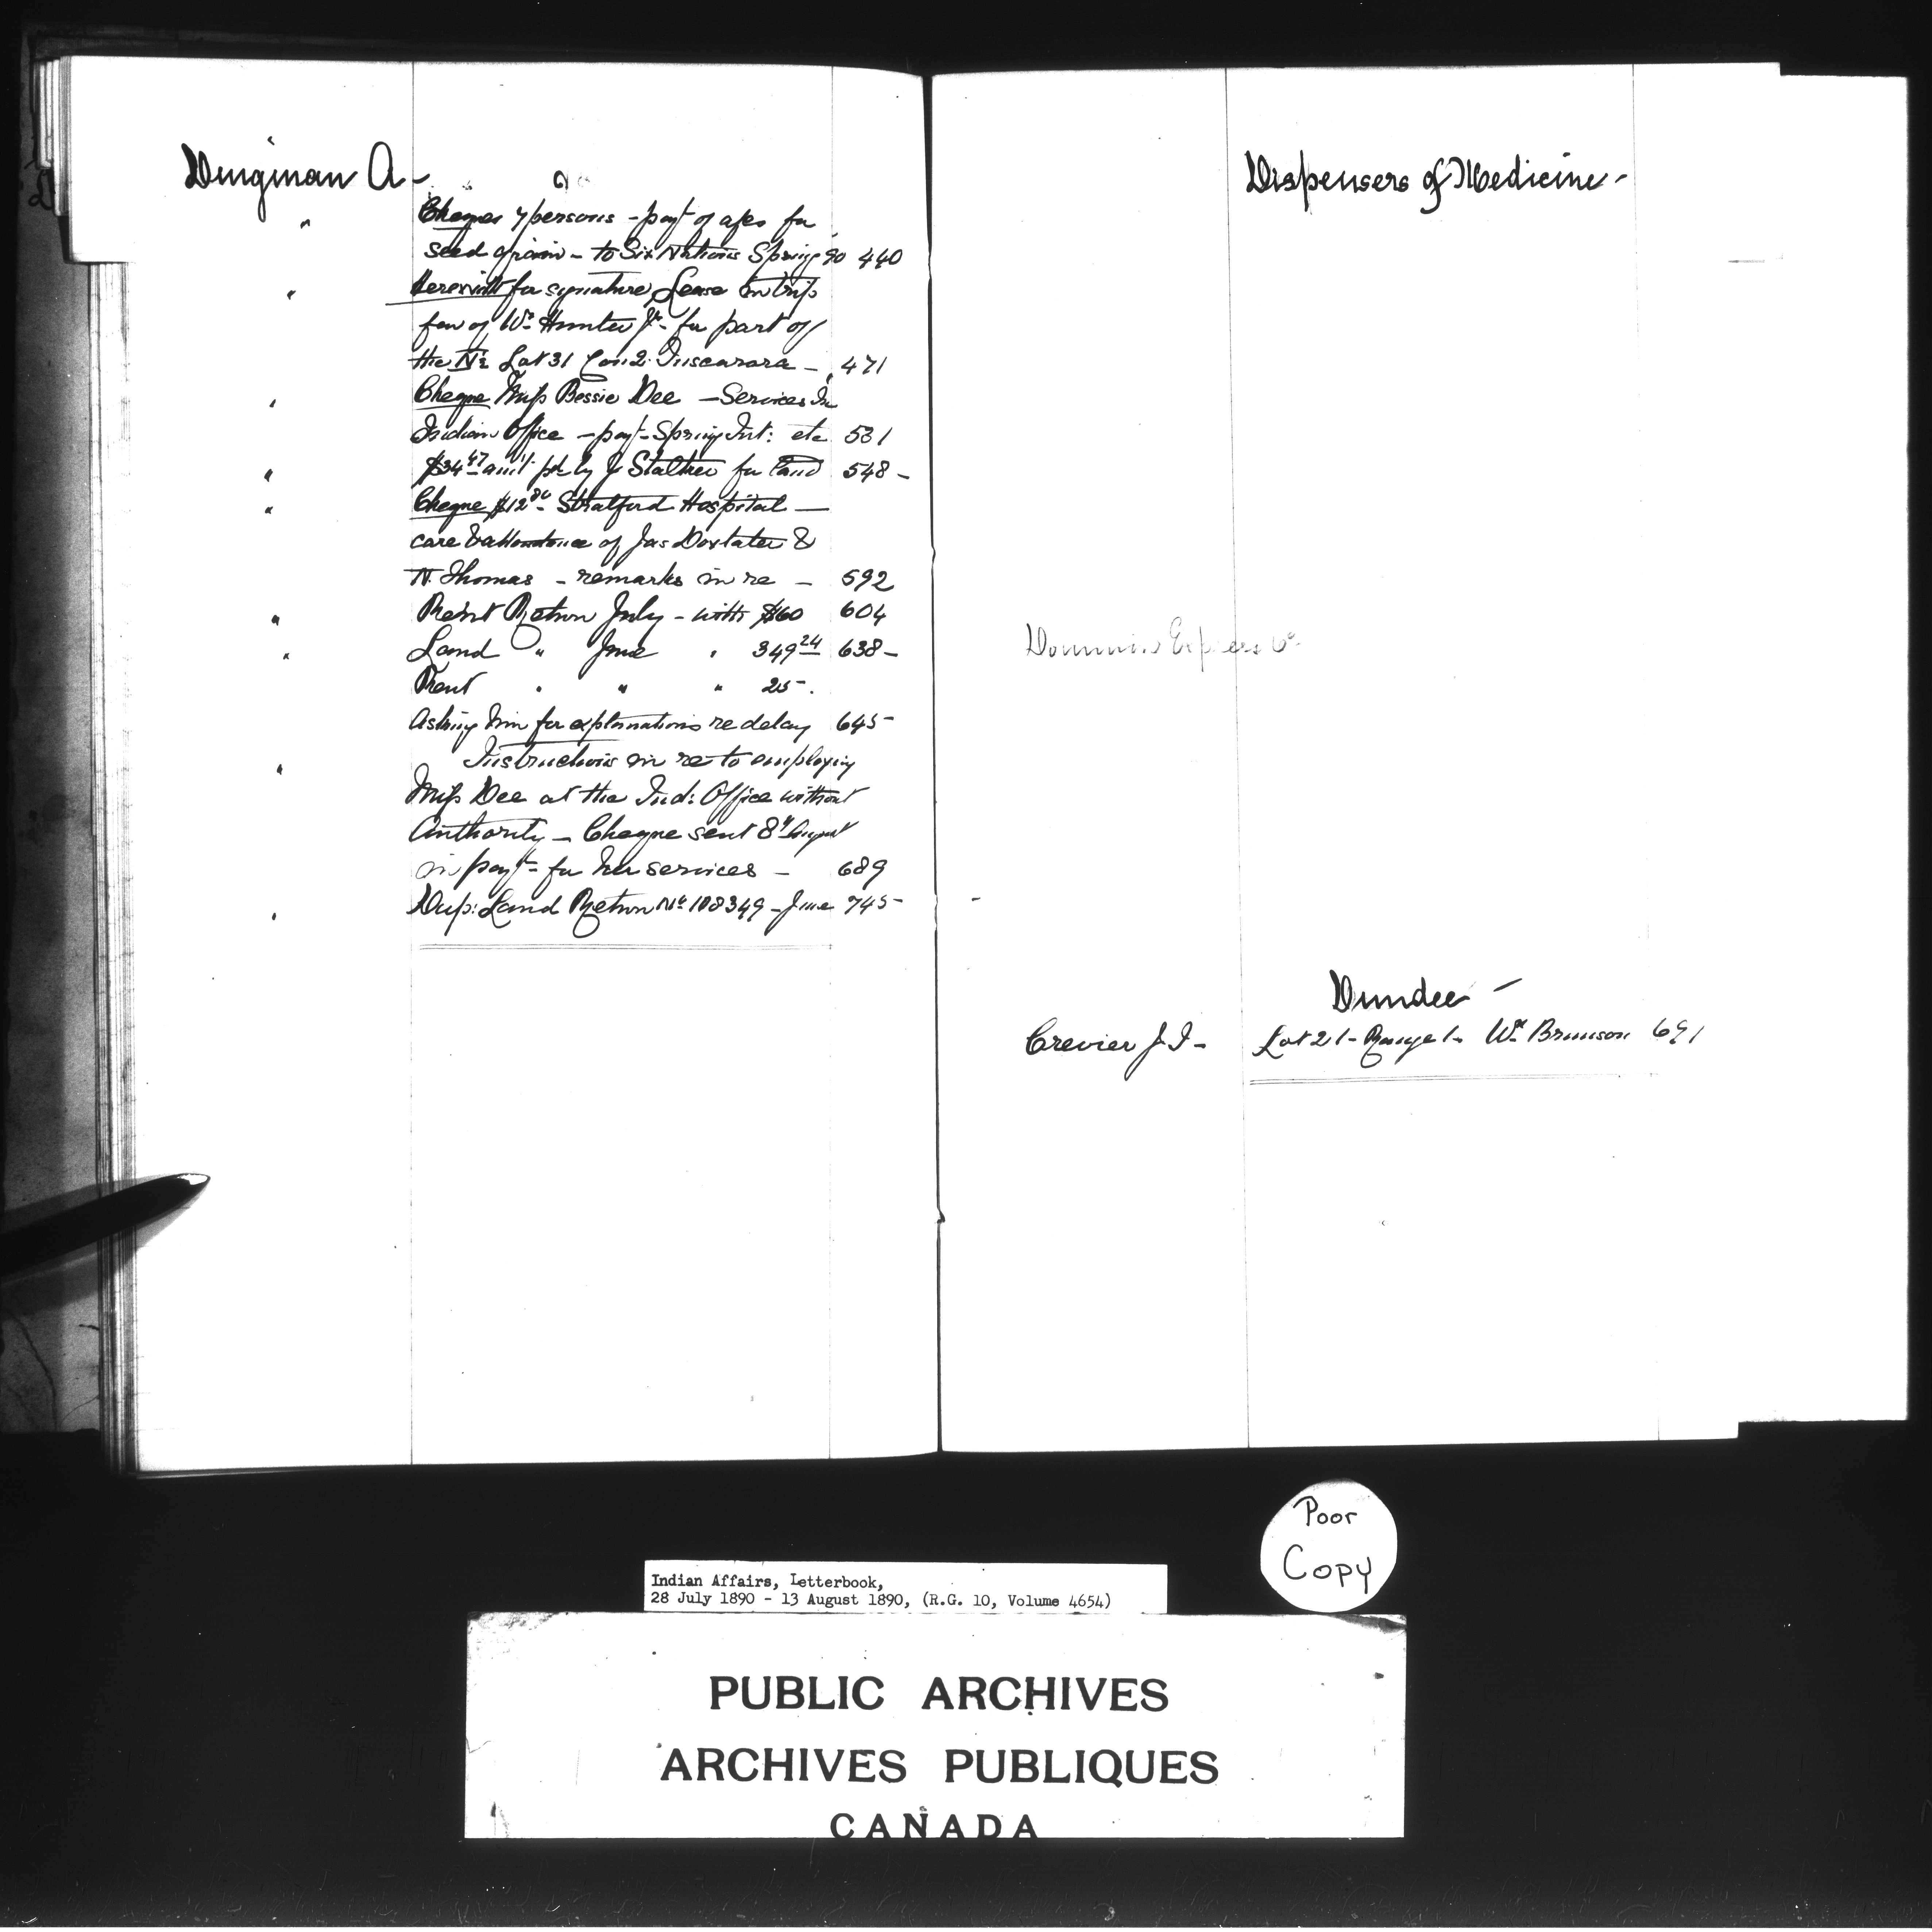 Dingman A -
" Cheques 7 persons - payt of a/cs for
seed grain - to Six Nations Spring 90 440
" Herewith for signature Lease in trip
fav of Wm Hunter Jr - for part of
the N½ Lot 31 Con 2 Tuscarora - 471
" Cheque Miss Bessie Dee - Services In
Indian Office - payt - Spring Int: etc 531
" $34 47 am't pd by J Stalker for land 548 -
" Cheque $12 80 - Stratford Hospital -
care & attendance of Jas Doxtater &
N. Thomas - remarks in re - 592
" Rent Return July - with $160 604
" Land " June " 349 24 638 -
Rent " " " 25 -
Asking him for explanations re delay 645 -
" Instructions in re to employing
Miss Dee at the Ind: Office without
Authority - Cheque sent 8th August
in payt - for her services - 689
" Dup: Land Return No 108349 - June 745 -
Dispensers of Medicine -
Dominion Express Co
Dundee -
Crevier J. I - Lot 21 - Range 1 - Wm Brunson 691
Poor
Copy
Indian Affairs, Letterbook,
28 July 1890 - 13 August 1890, (R.G. 10, Volume 4654)
PUBLIC ARCHIVES
ARCHIVES PUBLIQUES
CANADA